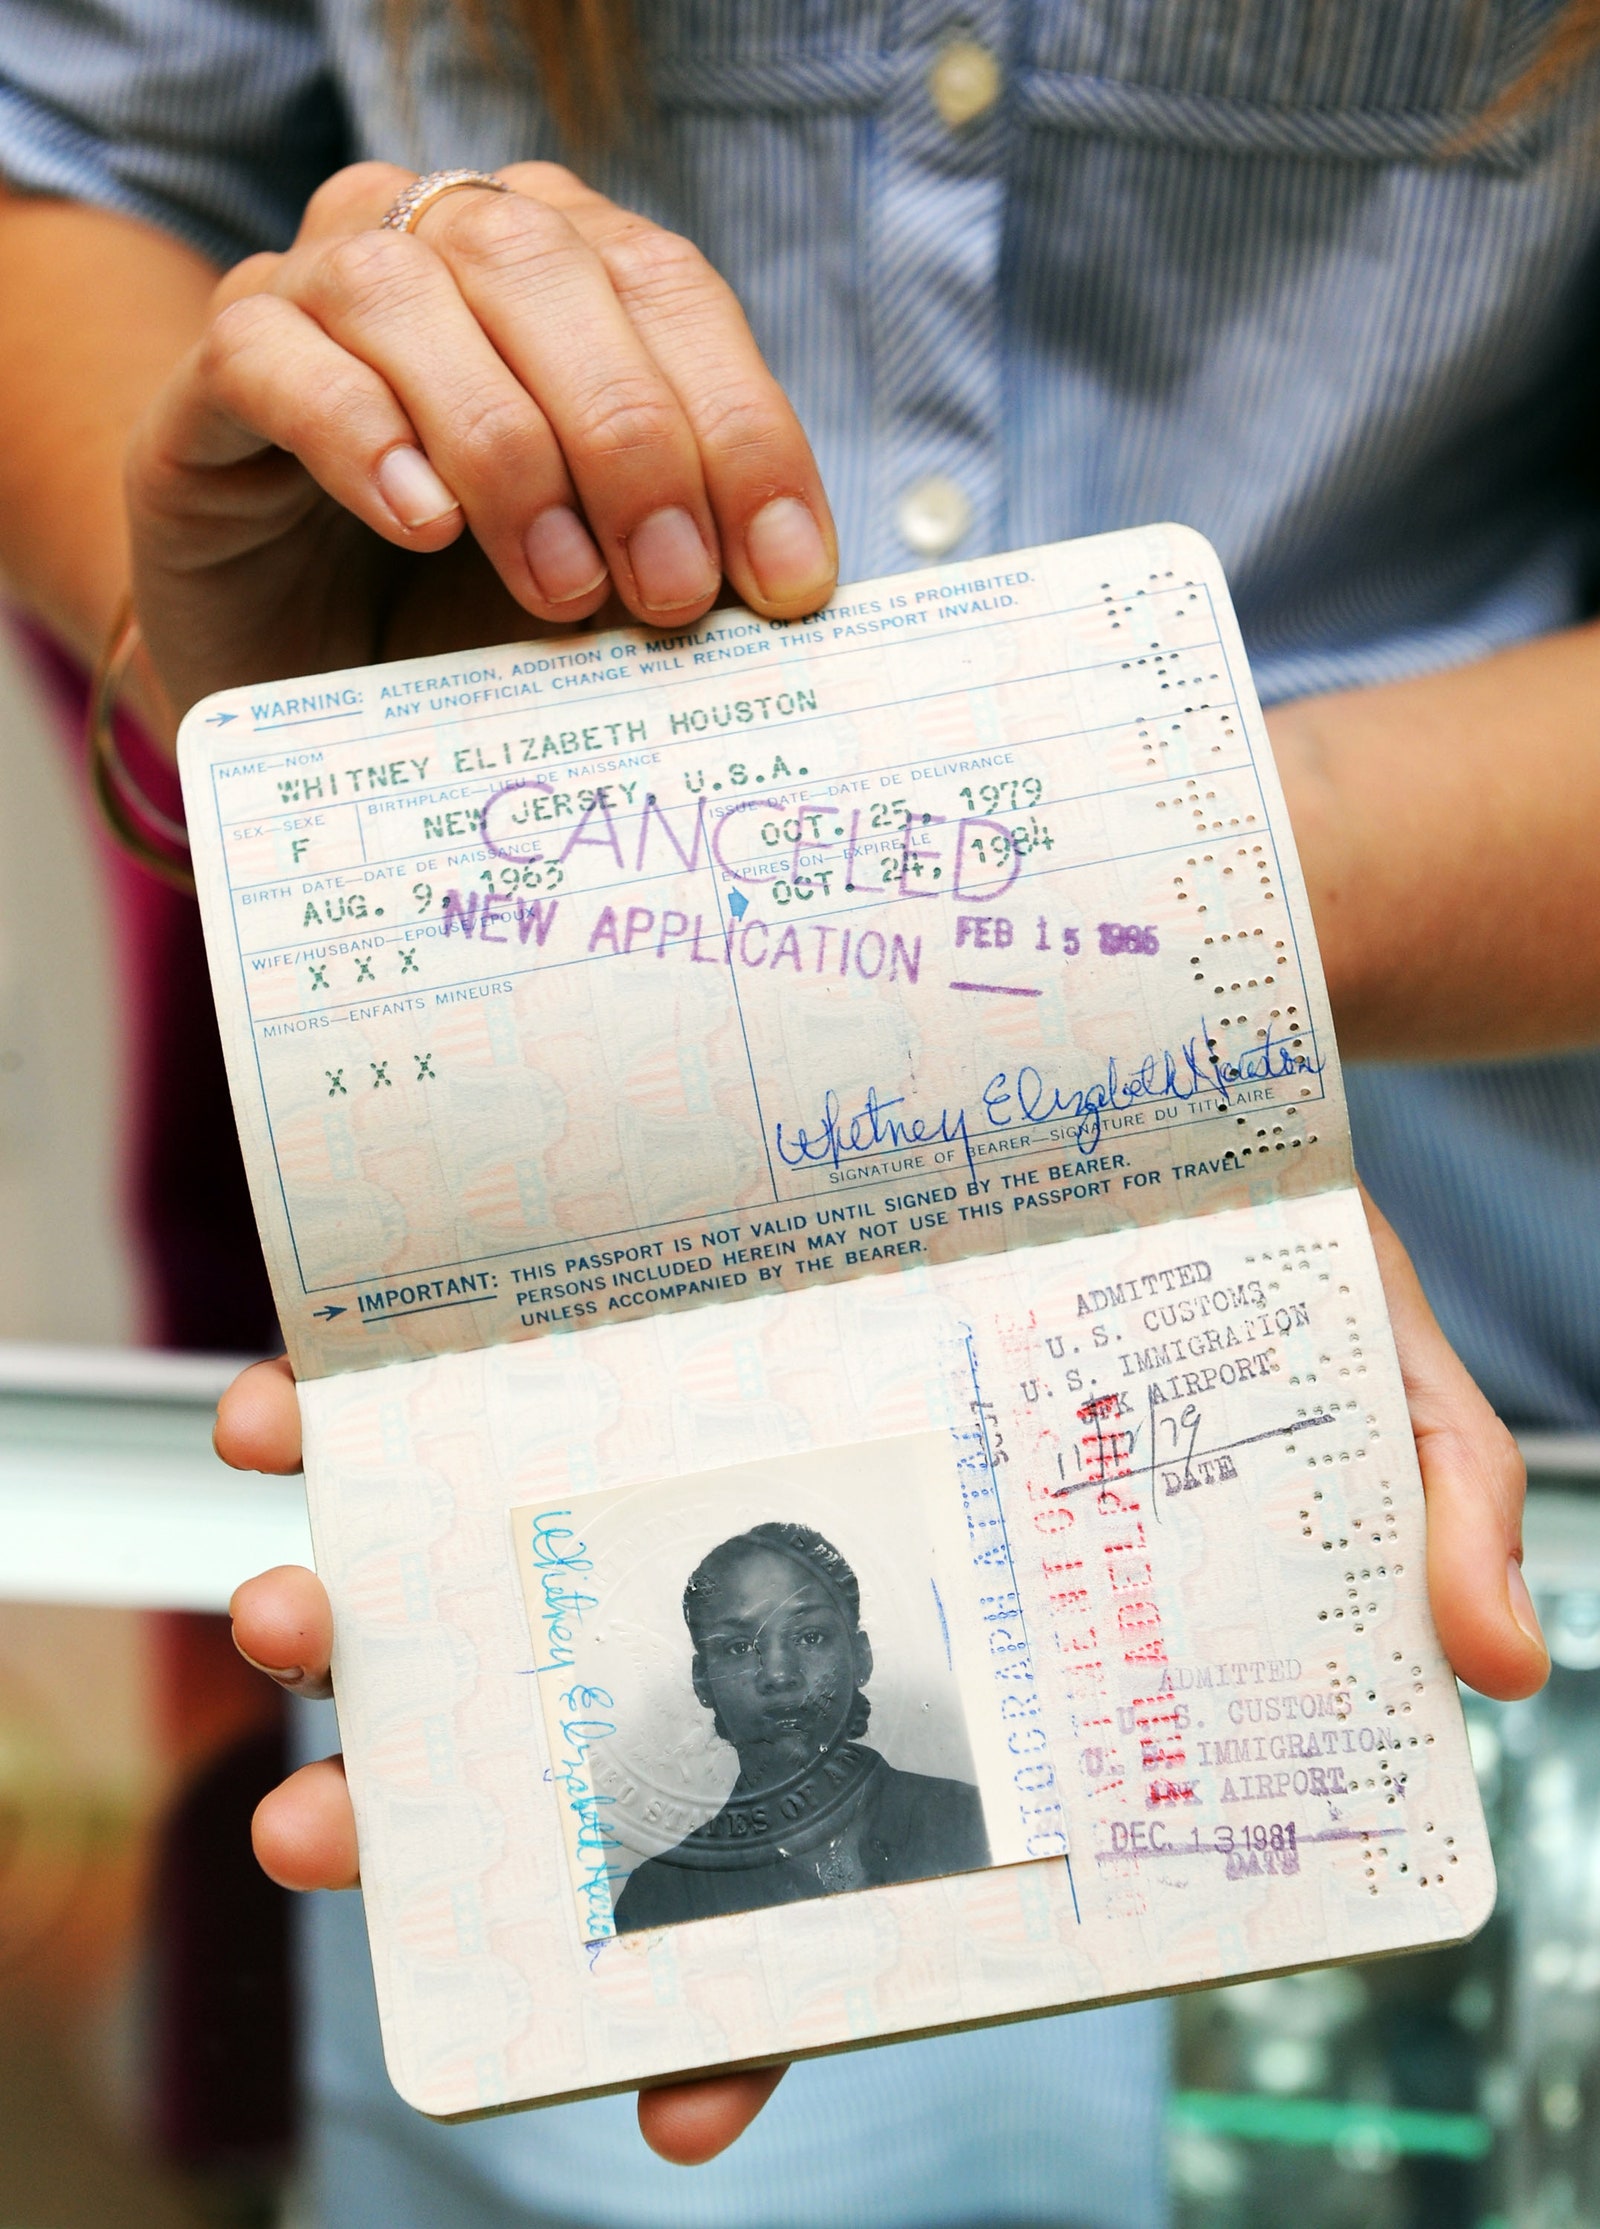 WARNING: ALTERATION, ADDITION OR MUTILATION OF ENTRIES IS PROHIBITED.
ANY UNOFFICIAL CHANGE WILL RENDER THIS PASSPORT INVALID.
NAME—NOM
WHITNEY ELIZABETH HOUSTON
SEX—SEXE
F
BIRTHPLACE—LIEU DE NAISSANCE
NEW JERSEY, U.S.A.
ISSUE DATE—DATE DE DELIVRANCE
OCT. 25, 1979
BIRTH DATE—DATE DE NAISSANCE
AUG. 9, 1963
EXPIRES ON—EXPIRE LE
OCT. 24, 1984
CANCELED
NEW APPLICATION FEB 15
WIFE/HUSBAND—EPOUSE/EPOUX
X X X
MINORS—ENFANTS MINEURS
X X X
Whitney Elizabeth Houston
SIGNATURE OF BEARER—SIGNATURE DU TITULAIRE
IMPORTANT: THIS PASSPORT IS NOT VALID UNTIL SIGNED BY THE BEARER.
PERSONS INCLUDED HEREIN MAY NOT USE THIS PASSPORT FOR TRAVEL
UNLESS ACCOMPANIED BY THE BEARER.
ADMITTED
U. S. CUSTOMS
U. S. IMMIGRATION
JFK AIRPORT
11/17/79
DATE
Whitney Elizabeth Houston
STATES OF AM
ADMITTED
U. S. CUSTOMS
U. S. IMMIGRATION
JFK AIRPORT
DEC. 13 1981
DATE